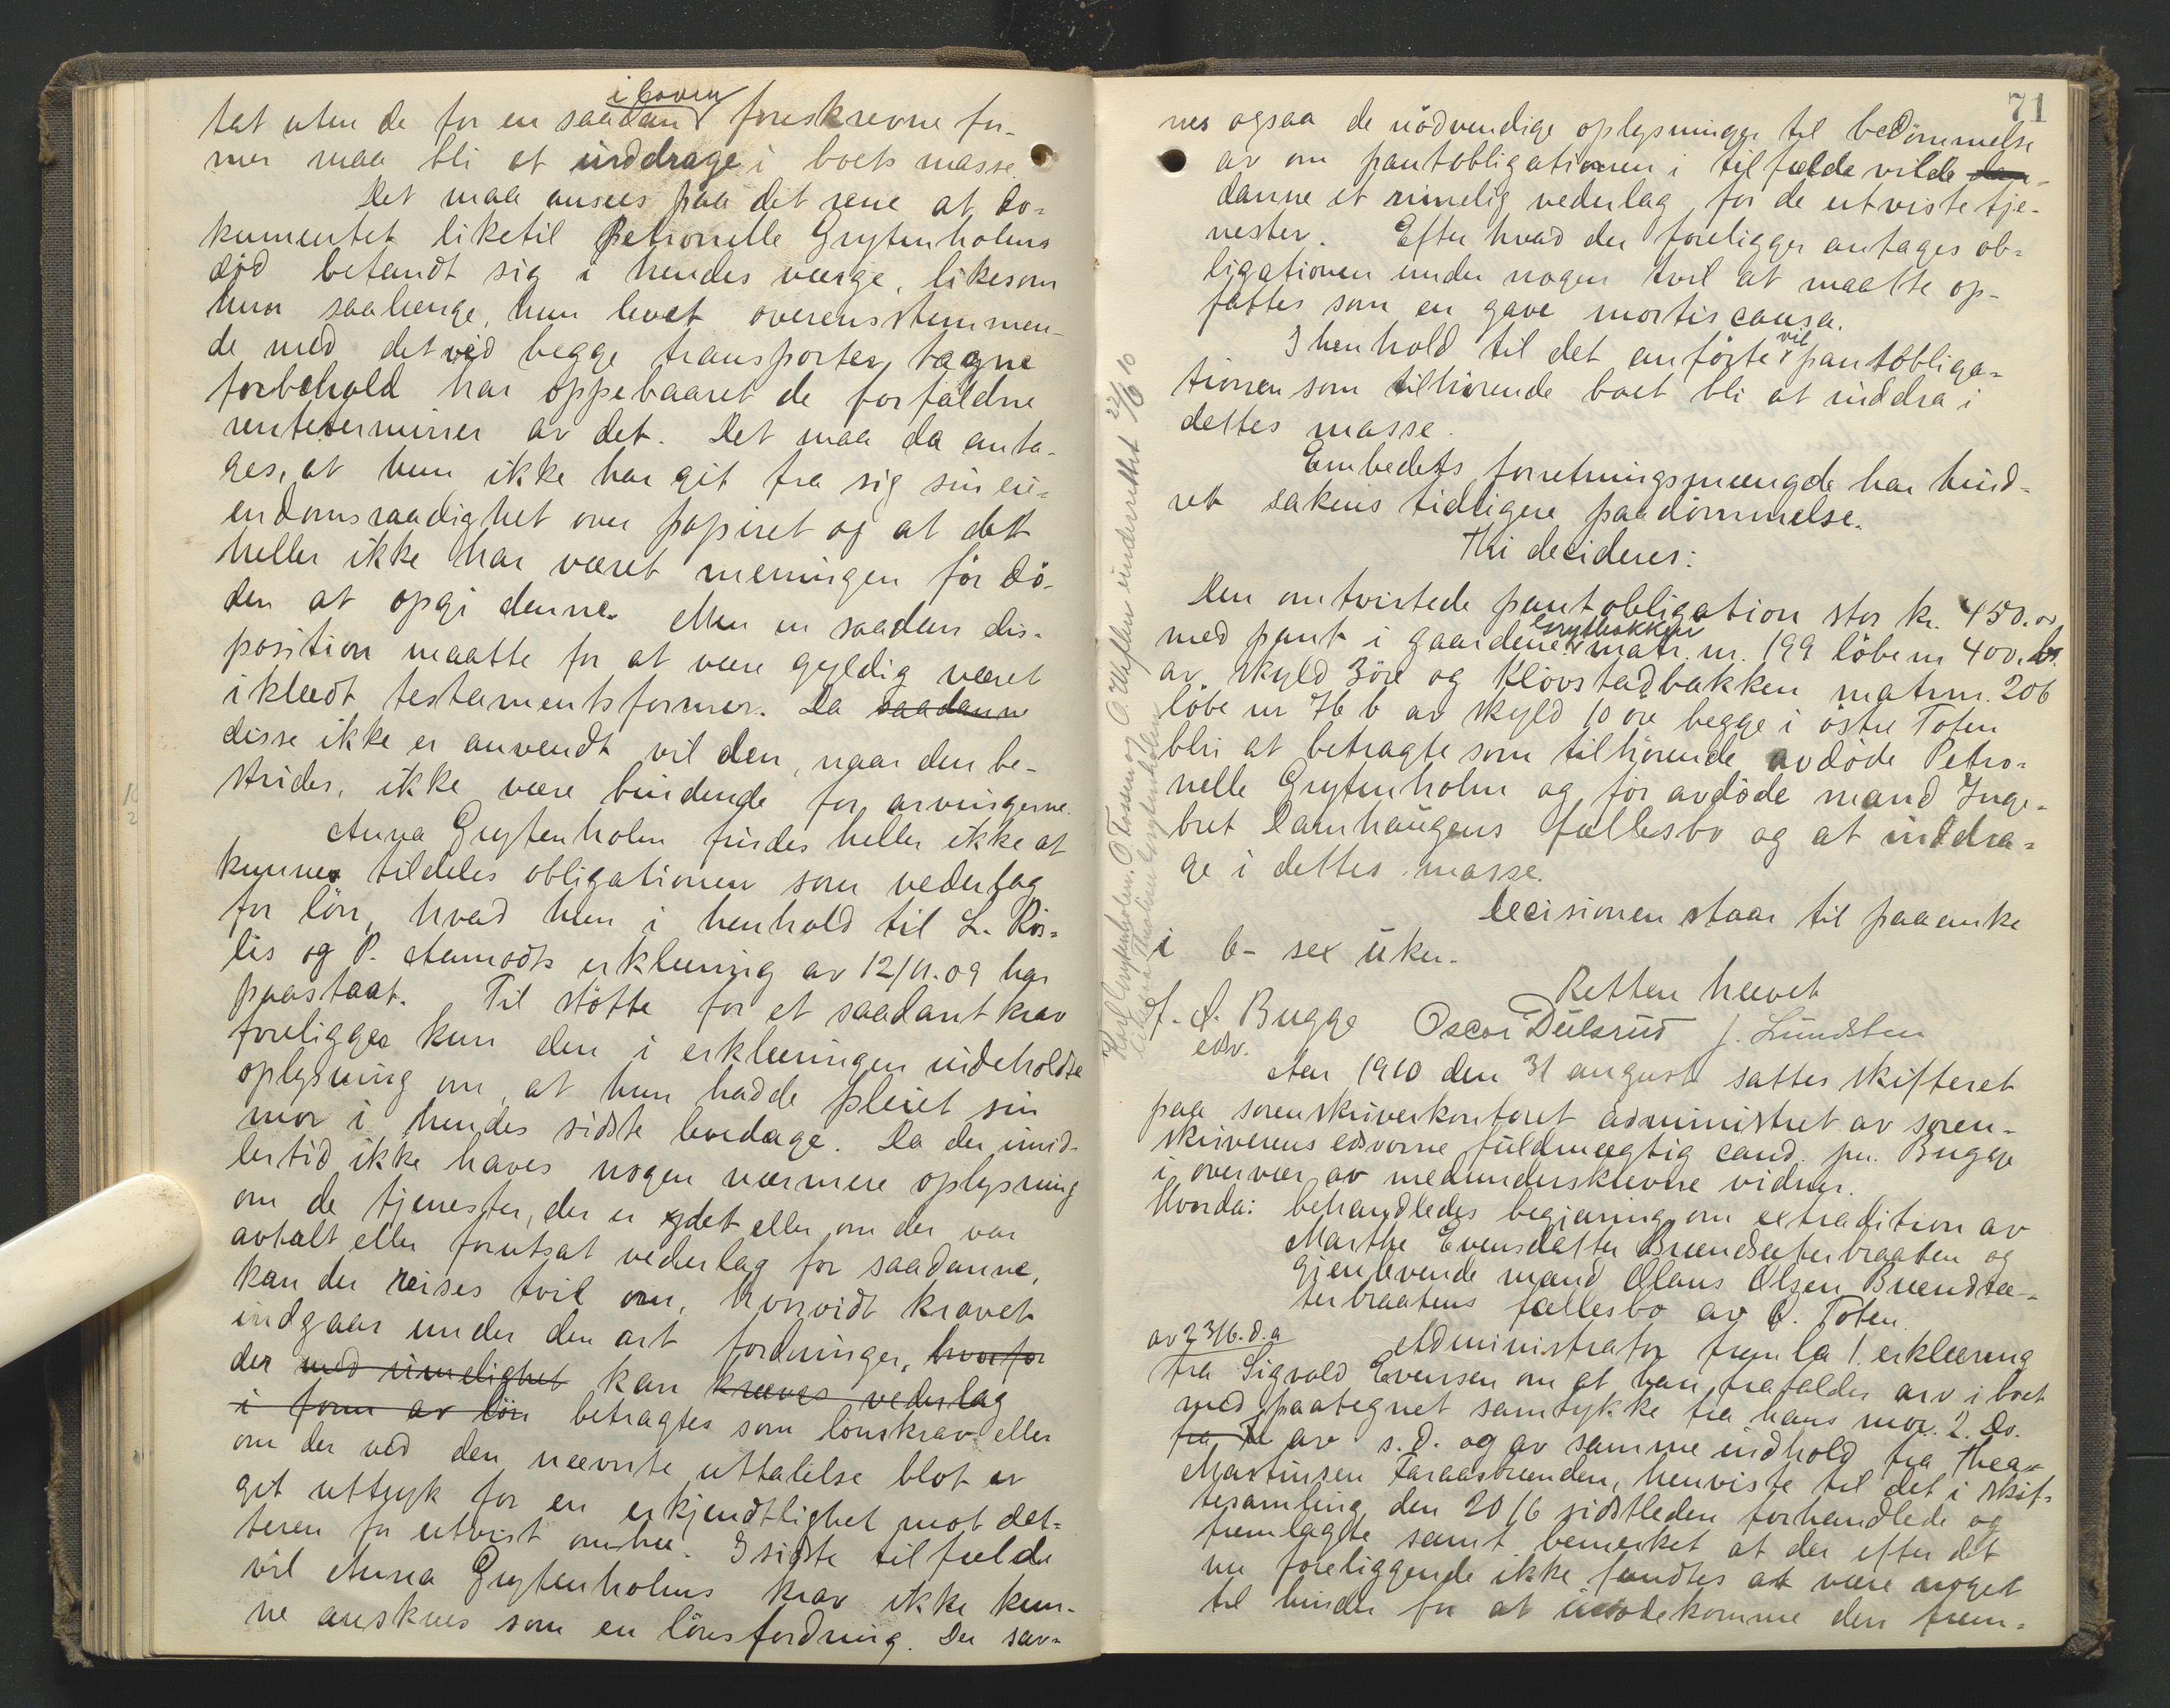 i loven
tat uten de for en saadan foreskrevne for-
mer maa bli at inddrage i boets masse.
Det maa ansees paa det rene at do-
kumentet liketil Petronelle Grytenholms
död befandt sig i hendes værge, likesom
hun saalænge hun levet overensstemmen-
de med det ved begge transporter tagne
forbehold har oppebaaret de forfaldne
renteterminer av det. Det maa da anta-
ges, at hun ikke har git fra sig sin ei-
endomsraadighet over papiret og at det
heller ikke har været meningen för dö-
den at opgi denne. Men en saadan dis-
position maatte for at være gyldig været
iklædt testamentsformer. Da saadanne
disse ikke er anvendt vil den, naar den be-
strides, ikke være bindende for arvingerne.
Anna Grytenholm findes heller ikke at
kunne tildeles obligationen som vederlag
for lön, hvad hun i henhold til L. Rös-
lis og P. Aamodts erklæring av 12/11.09 har
paastaat. Til stötte for et saadant krav
foreligger kun den i erklæringen indeholdte
oplysning om at hun hadde pleiet sin
mor i hendes sidste levedage. Da der imid-
lertid ikke haves nogen nærmere oplysning
om de tjenester, der er ydet eller om der var
avtalt eller forutsat vederlag for saadanne,
kan der reises tvil om, hvorvidt kravet
indgaar under den art fordringer, hvorfor
der med rimelighet kan kræves vederlag
i form av lön betragtes som lönskrav eller
om der ved den nævnte uttalelse blot er
git uttryk for en erkjendtlighet mot dat-
teren for utvist omhu. I sidste tilfælde
vil Anna Grytenholms krav ikke kun-
ne ansknes som en lönsfordring. Der sav-
71
nes ogsaa de nödvendige oplysninger til bedömmelse
av om pantobligationen i tilfælde vilde dan-
danne et rimelig vederlag for de utviste tje-
nester. Efter hvad der foreligger antages ob-
ligationen under nogen tvil at maatte op-
fattes som en gave mortis causa.
I henhold til det anförte vil pantobliga-
tionen som tilhörende boet bli at inddra i
dettes masse.
Embedets forretningsmængde har hind-
ret sakens tidligere paadömmelse.
Thi decideres:
Den omtvistede pantobligation stor kr. 450.00
med pant i gaardene Grytbakken matr. nr. 199 löbenr 400. b.
av skyld 3öre og Klövstadbakken matrnr. 206
löbe nr 76 b av skyld 10 öre begge i östre Toten
bli at betragte som tilhörende avdöde Petro-
nelle Grytenholm og för avdöde mand Inge-
bret Damhaugens fællesbo og at inddra-
ge i dettes masse.
Decisionen staar til paaanke
i 6- sex uker.
Retten hævet
J. F. Bugge Oscar Dulsrud J. Lundsten
edsv.
Karl Grytenholm, O. Tosen og O. underrettet 22/6 10
Aar 1910 den 31 august sattes skifteret
paa sorenskriverkontoret administret av soren-
skriverens edsvorne fuldmægtig cand. jur. Bugge
i overvær av medunderskrevne vidner.
Hvorda: behandledes begjæring om extradition av
Marthe Evensdatter Brændsæterbraaten og
gjenlevende mand Olaus Olsen Brændsæ-
terbraatens fællesbo av Ö. Toten.
av 23/6. d. a
Administrator fremla 1. erklæring
fra Sigvald Evensen om at han frafalder arv i boet
med paategnet samtykke fra hans mor. 2. Do.
fra av s. d. og av samme indhold fra Thea
Martinsen Faraasbrænden, henviste til det i skif-
tesamling den 20/6 sidstleden forhandlede og
fremlagte samt bemerket at der efter det
nu foreliggende ikke fandtes at være noget
til hinder for at imödekomme den frem-